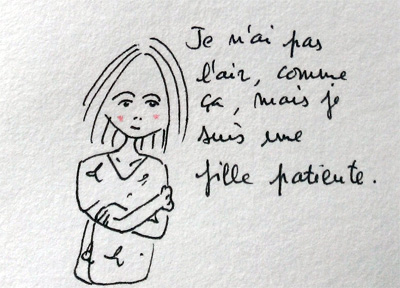 Je n'ai pas
l'air, comme
ça, mais je
suis une
fille patiente.